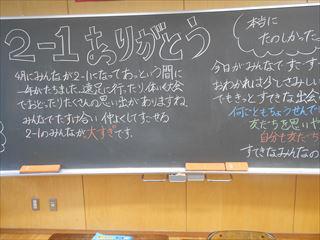 2-1 ありがとう
4月にみんなが2-1になってあっという間に
一年がたちました。遠足に行ったり、体いく大会
でおどったりたくさんの思い出がありますね。
みんなでたすけ合い 仲よくしてすごせる
2-1のみんなが大すきです。
本当に
たのしかった
今日がみんなですごす
おわかれは少しさみしい
でもきっとすてきな出会
何ごともちょうせんで
友だちを思いや
自分も友だち
すてきなみんなの